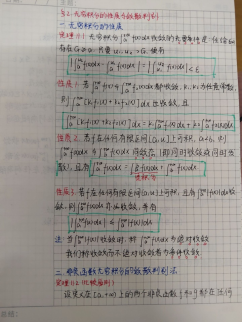 §2 无穷积分的性质与收敛判别
一. 无穷积分的性质
定理11.1 无穷积分∫f(x)dx收敛的充要条件是: 任给ε>0
存在G≥a, 只要u₁, u₂>G, 便有
|∫f(x)dx-∫f(x)dx|=|∫f(x)dx|<ε
性质1 若∫f₁(x)dx与∫f₂(x)dx都收敛, k₁, k₂为任意常数,
则∫[k₁f₁(x)+k₂f₂(x)]dx也收敛, 且
∫[k₁f₁(x)+k₂f₂(x)]dx=k₁∫f₁(x)dx+k₂∫f₂(x)dx
性质2 若f在任何有限区间[a,u]上可积, a<b, 则
∫f(x)dx与∫f(x)dx同敛态(即同时收敛或同时发
散), 且有∫f(x)dx=∫f(x)dx+∫f(x)dx
性质3 若f在任何有限区间[a,u]上可积, 且有∫|f(x)|dx收
敛, 则∫f(x)dx亦必收敛, 并有
|∫f(x)dx|≤∫|f(x)|dx
注: 当∫|f(x)|dx收敛时, 称∫f(x)dx为绝对收敛
我们称收敛而不绝对收敛者为条件收敛
二. 非负函数无穷积分的收敛判别法
定理11.2(比较原则)
设定义在[a,+∞)上的两个非负函数f和g都在任何